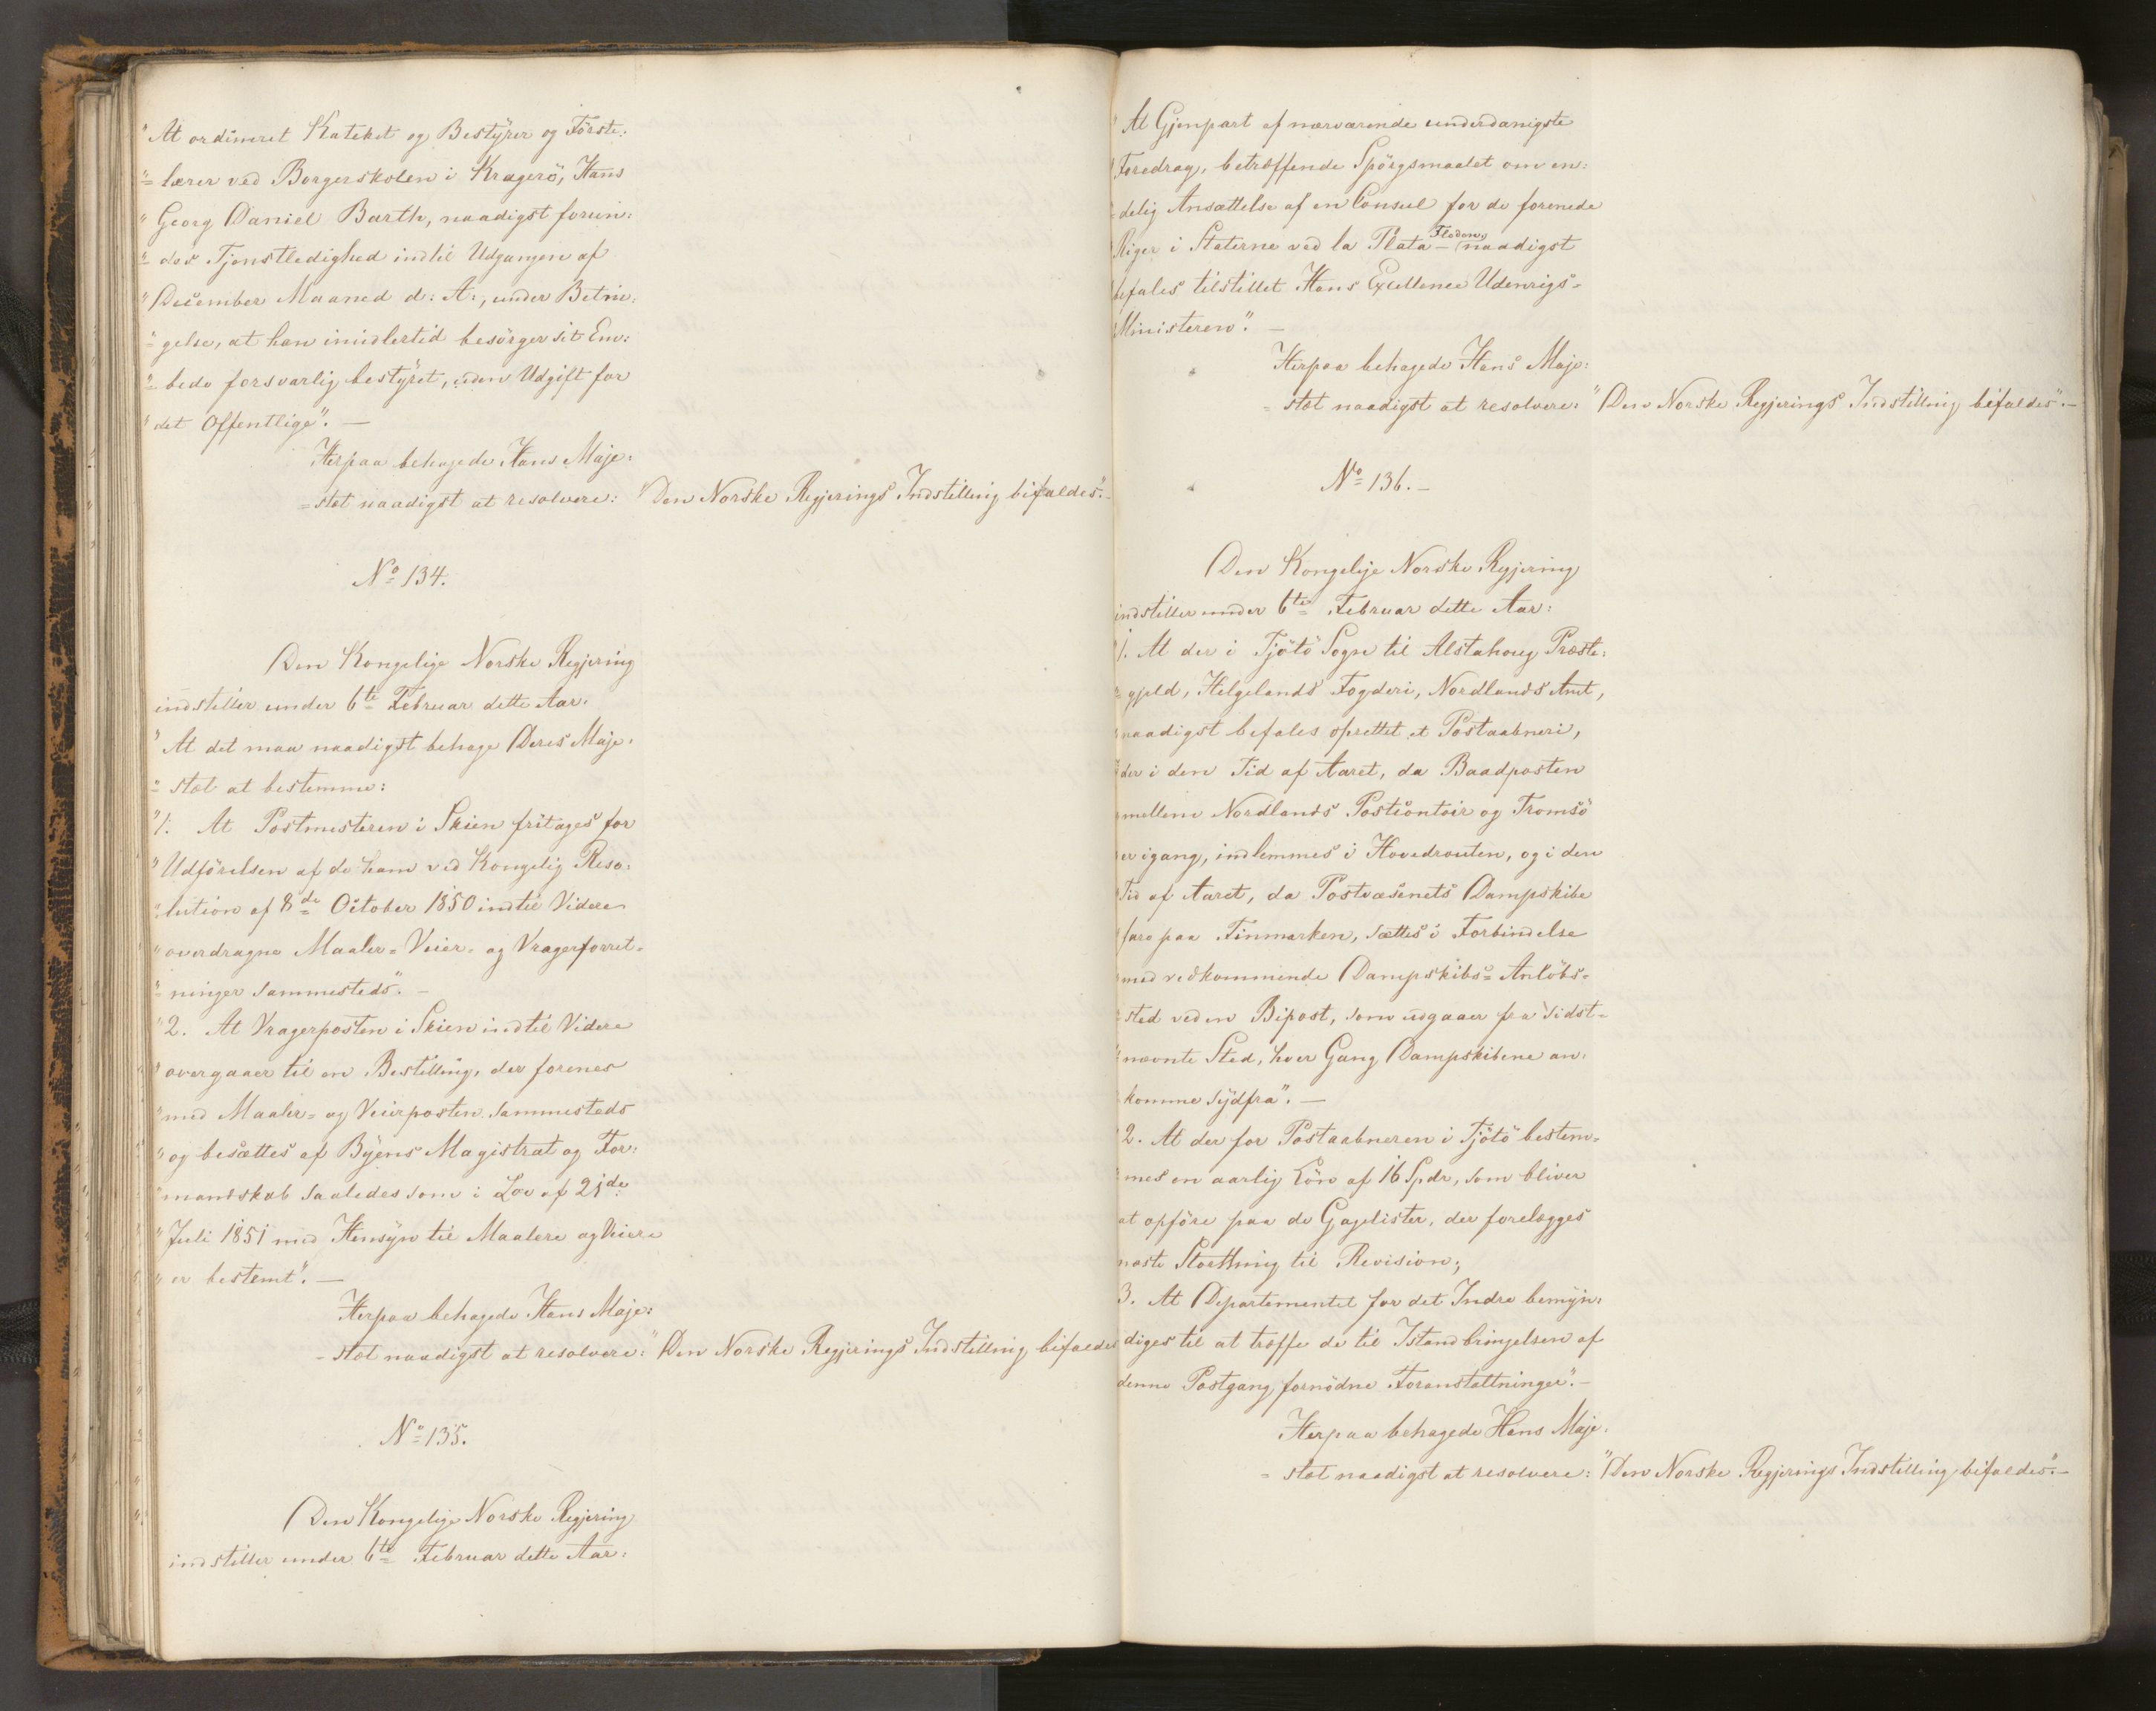 "At ordineret Kateket og Bestÿrer og Förste:
"=lærer ved Borgerskolen i Kragerö, Hans
"Georg Daniel Barth, naadigst forun:
"=des Tjenstledighed indtil Udgangen af
"December Maaned d: A:, under Betin:
"=gelse, at han imidlertid besörger sit Em:
"=bede forsvarlig bestÿret, uden Udgift for
"det Offentlige". —
Herpaa behagede Hans Maje:
=stæt naadigst at resolvere: "Den Norske Regjerings Indstilling bifaldes". -
No 134.
Den Kongelige Norske Regjering
indstiller under 6te Februar dette Aar:
"At det maa naadigst behage Deres Maje:
"=stæt at bestemme:
"1. At Postmesteren i Skien fritages for
"Udförelsen af de ham ved Kongelig Reso:
"=lution af 8de October 1850 indtil Videre
"overdragne Maaler= Veier= og Vragerforret=
"=ninger sammesteds". -
"2. At Vragerposten i Skien indtil Videre
"overgaaer til en Bestilling, der forenes
"med Maaler= og Veierposten sammesteds
"og besættes af Bÿens Magistrat og For:
"mandskab saaledes som i Lov af 21de
"Juli 1851 med Hensÿn til Maalere og Veiere
"er bestemt". —
Herpaa behagede Hans Maje:
=stæt naadigst at resolvere: "Den Norske Regjerings Indstilling bifaldes
No 135.
Den Kongelige Norske Regjering
indstiller under 6te Februar dette Aar:
"At Gjenpart af nærværende underdanigste
Foredrag, betræffende Spörgsmaalet om en:
=delig Ansættelse af en Consul for de forenede
Riger i Staterne ved la Plata - Floden, naadigst
befales tilstillet Hans Excellence Udenrigs=
Ministeren". —
Herpaa behagede Hans Maje:
=stæt naadigst at resolvere: "Den Norske Regjerings Indstilling bifaldes". -
No 136. -
Den Kongelige Norske Regjering
indstiller under 6te Februar dette Aar:
"1. At der i Tjötö Sogn til Alstahoug Præste:
"=gjeld, Helgelands Fogderi, Nordlands Amt,
"naadigst befales oprettet et Postaabneri,
"der i den Tid af Aaret, da Baadposten
"mellem Nordlands Postcontoir og Tromsö
"er igang, indlemmes i Hovedrouten, og i den
"Tid af Aaret, da Postvæsenets Dampskibe
"fare paa Finmarken, sættes i Forbindelse
"med vedkommende Dampskibs= Anlöbs=
"=sted ved en Bipost, som udgaaer fra sidst=
"nævnte Sted, hver Gang Dampskibene an:
"komme sÿdfra". —
"2. At der for Postaabneren i Tjötö bestem=
"mes en aarlig Lön af 16 Spdr, som bliver
at opföre paa de Gagelister, der forelægges
næste Storthing til Revision;
3. At Departementet for det Indre bemÿn:
diges til at træffe de til Istandbringelsen af
denne Postgang fornödne Foranstaltninger". -
Herpaa behagede Hans Maje:
=stæt naadigst at resolvere: "Den Norske Regjerings Indstilling bifaldes". —